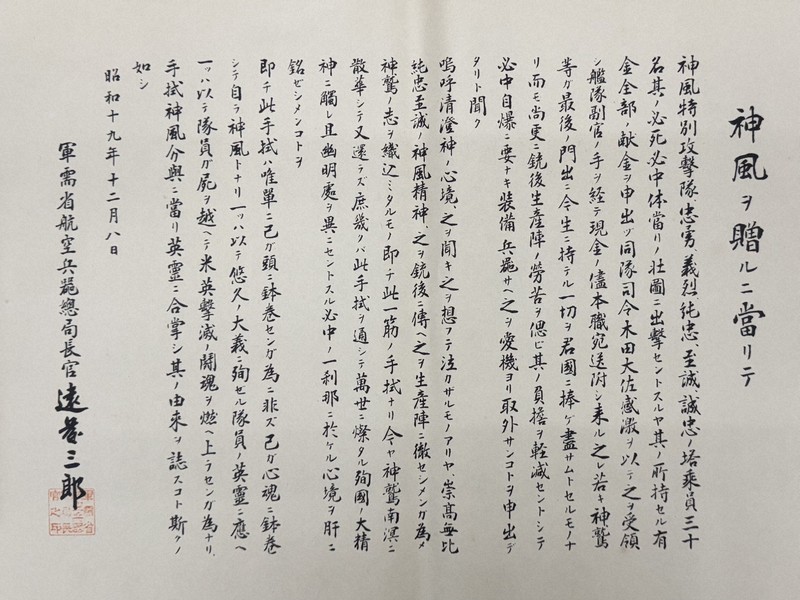 神風ヲ贈ルニ當リテ
神風特別攻擊隊、忠勇、義烈、純忠、至誠、誠忠ノ塔乘員三十
名其ノ必死必中体當リノ壮圖ニ出擊セントスルヤ其ノ所持セル有
金全部ノ献金ヲ申出ヅ同隊司令木田大佐感激ヲ以テ之ヲ受領
シ艦隊副官ノ手ヲ経テ現金ノ儘本職宛送附シ来ル之レ若キ神鷲
等ガ最後ノ門出ニ今生ニ持テル一切ヲ君國ニ捧ゲ盡サムトセルモノナ
リ而モ尚更ニ銃後生產陣ノ勞苦ヲ偲ビ其ノ負擔ヲ軽減セントシテ
必中自爆ニ要ナキ装備兵器サヘ之ヲ愛機ヨリ取外サンコトヲ申出デ
タリト聞ク
嗚呼清澄神ノ心境、之ヲ聞キ之ヲ想フテ泣カザルモノアリヤ、崇高無比
純忠至誠ノ神風精神、之ヲ銃後ニ傳ヘ之ヲ生產陣ニ徹セシメンガ為メ
神鷲ノ志ヲ織込ミタルモノ即チ此一筋ノ手拭ナリ今ヤ神鷲南溟ニ
散華シテ又還ラズ庶幾クバ此手拭ヲ通シテ萬世ニ燦タル殉國ノ大精
神ニ觸レ且幽明處ヲ異ニセントスル必中ノ一刹那ニ於ケル心境ヲ肝ニ
銘ゼシメンコトヲ
即チ此手拭ハ唯單ニ己ガ頭ニ鉢巻センガ為ニ非ズ己ガ心魂ニ鉢巻
シテ自ラ神風トナリ一ツハ以テ悠久ノ大義ニ殉セル隊員ノ英靈ニ應ヘ
一ツハ以テ隊員ガ屍ヲ越ヘテ米英擊滅ノ鬪魂ヲ燃ヘ上ラセンガ為ナリ、
手拭神風分與ニ當リ英靈ニ合掌シ其ノ由来ヲ誌スコト斯クノ
如シ
昭和十九年十二月八日
軍需省航空兵器總局長官 遠藤三郎